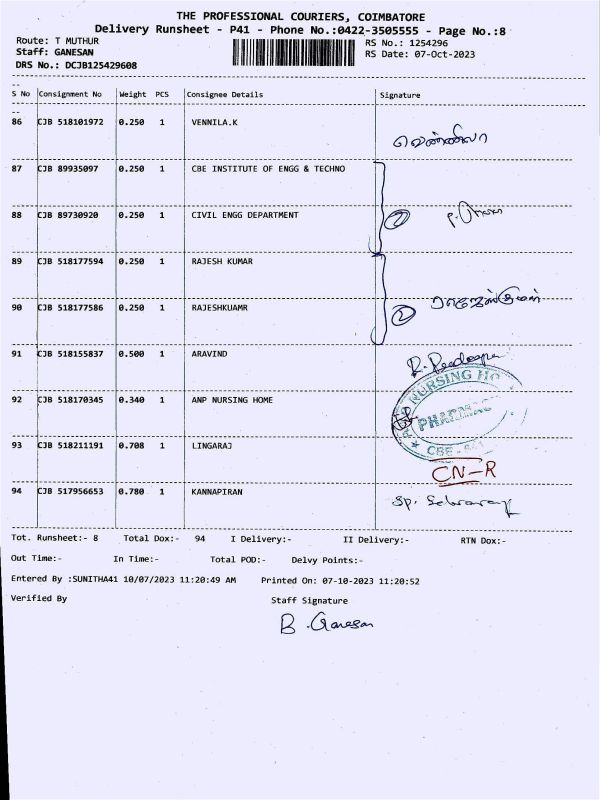 THE PROFESSIONAL COURIERS, COIMBATORE
Delivery Runsheet - P41 - Phone No.:0422-3505555 - Page No.:8
Route: T MUTHUR RS No.: 1254296
Staff: GANESAN RS Date: 07-Oct-2023
DRS No.: DCJB125429608
S No Consignment No Weight PCS Consignee Details Signature
86 CJB 518101972 0.250 1 VENNILA.K வெண்ணிலா
87 CJB 89935097 0.250 1 CBE INSTITUTE OF ENGG & TECHNO
88 CJB 89730920 0.250 1 CIVIL ENGG DEPARTMENT 2
89 CJB 518177594 0.250 1 RAJESH KUMAR
90 CJB 518177586 0.250 1 RAJESHKUAMR 2 ராஜேஸ்குமார்
91 CJB 518155837 0.500 1 ARAVIND
92 CJB 518170345 0.340 1 ANP NURSING HOME NURSING HO
PHARMAC
CBE
93 CJB 518211191 0.708 1 LINGARAJ CN-R
94 CJB 517956653 0.780 1 KANNAPIRAN SP. Selvaraj
Tot. Runsheet:- 8 Total Dox:- 94 I Delivery:- II Delivery:- RTN Dox:-
Out Time:- In Time:- Total POD:- Delvy Points:-
Entered By :SUNITHA41 10/07/2023 11:20:49 AM Printed On: 07-10-2023 11:20:52
Verified By Staff Signature
B. Ganesan